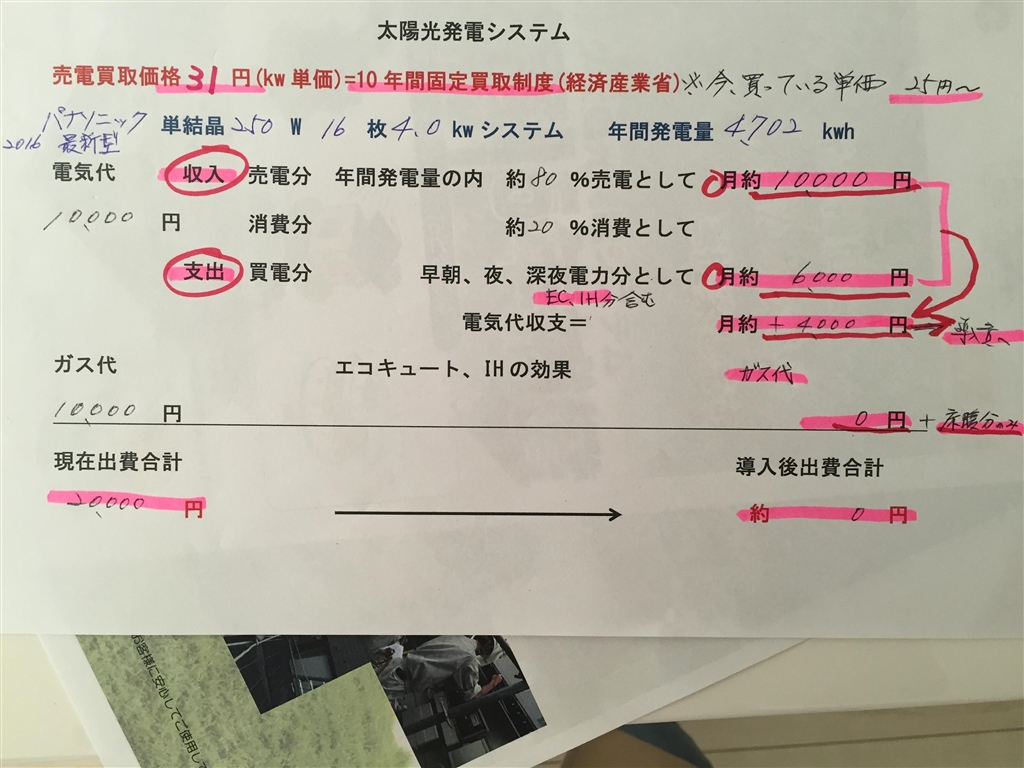 太陽光発電システム
売電買取価格31円(kw単価)=10年間固定買取制度(経済産業省)※今、買っている単価 25円〜
パナソニック
2016 最新型
単結晶250W 16枚4.0kwシステム 年間発電量4,702kwh
電気代 収入 売電分 年間発電量の内 約80%売電として 月約10,000円
10,000円 消費分 約20%消費として
支出 買電分 早朝、夜、深夜電力分として 月約6,000円
EC、IH分含む
電気代収支= 月約+4,000円
ガス代 エコキュート、IHの効果 ガス代
10,000円 0円+床暖分のみ
現在出費合計 導入後出費合計
20,000円 約0円
お客様に安心してご使用し